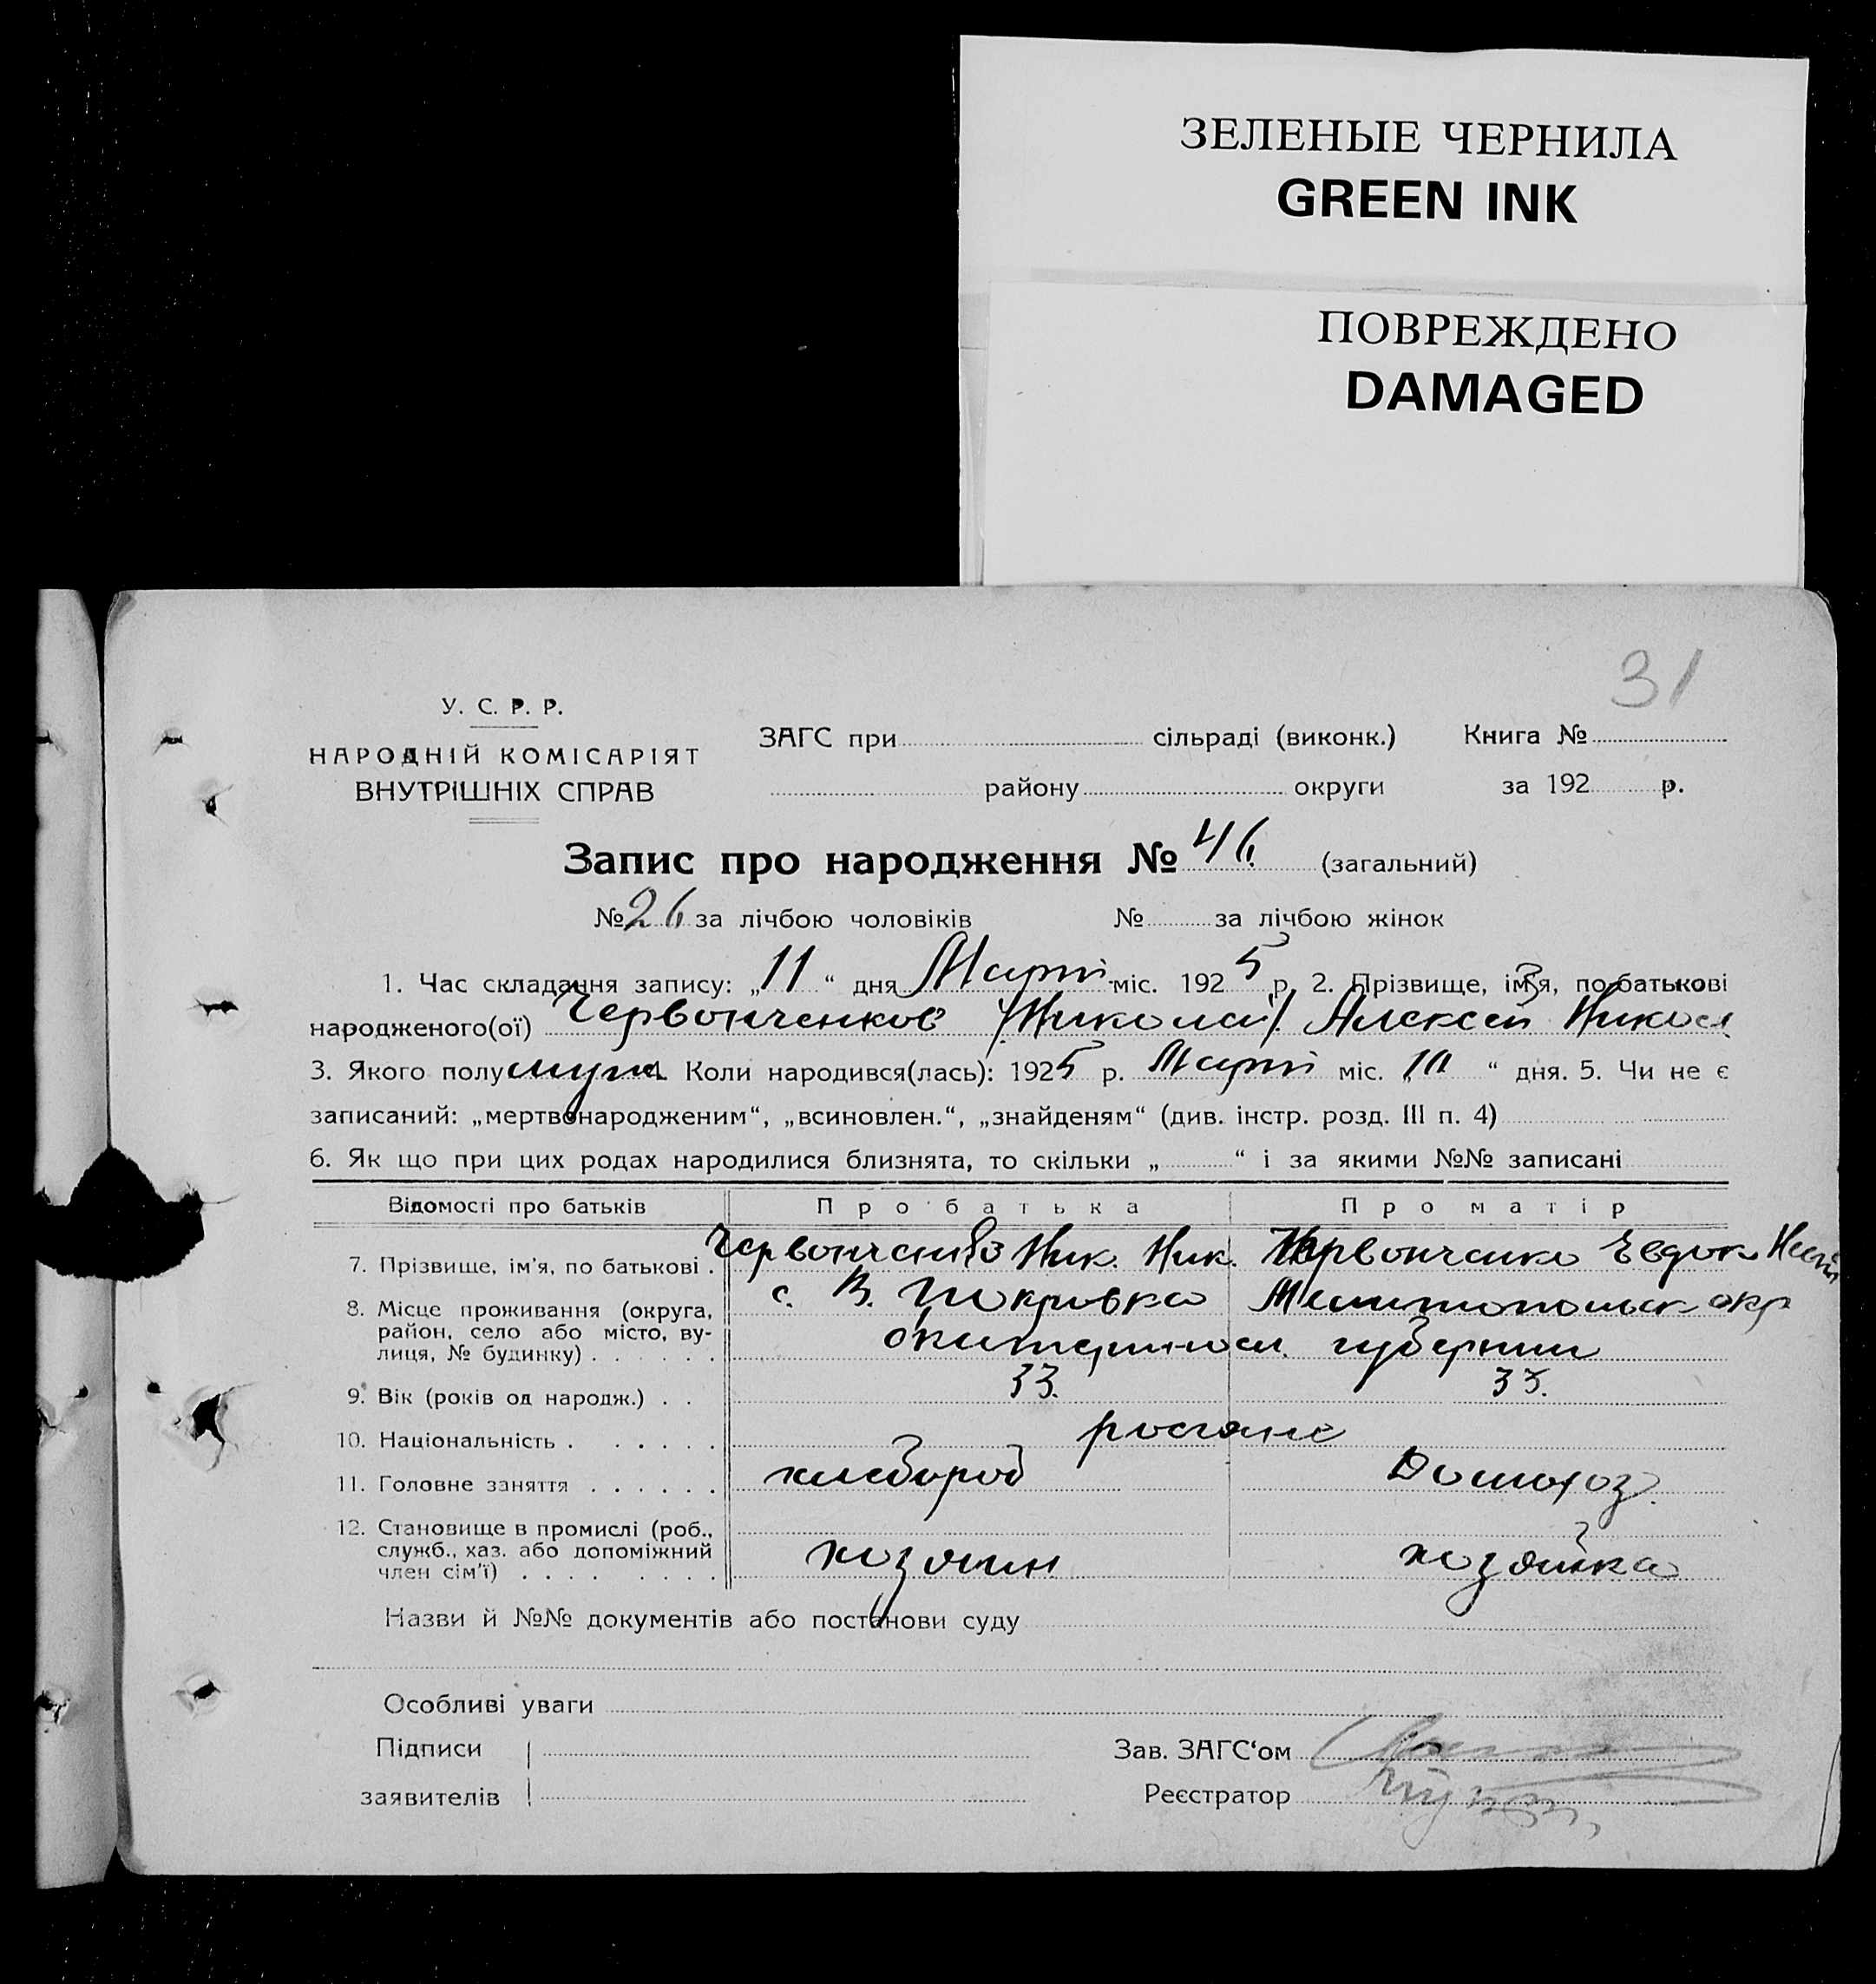 ЗЕЛЕНЫЕ ЧЕРНИЛА
GREEN INK
ПОВРЕЖДЕНО
DAMAGED
31
У. С. Р. Р.
НАРОДНІЙ КОМІСАРІЯТ
ВНУТРІШНІХ СПРАВ
ЗАГС при сільраді (виконк.) Книга №
району округи за 192 р.
Запис про народження № 46 (загальний)
№ 26 за лічбою чоловіків № за лічбою жінок
1. Час складання запису: „11“ дня Март міс. 1925 р. 2. Прізвище, ім'я, по батькові
народженого(ої) Червонченков /Николай/ Алексей Никол
3. Якого полу муж. 4. Коли народився(лась): 1925 р. Март міс. „10“ дня. 5. Чи не є
записаний: „мертвонародженим“, „всиновлен.“, „знайденям“ (див. інстр. розд. III п. 4)
6. Як що при цих родах народилися близнята, то скільки „ “ і за якими №№ записані
Відомості про батьків Про батька Про матір
7. Прізвище, ім'я, по батькові . Ник. Ник. Червонченко Евдок
8. Місце проживання (округа, район, село або місто, ву-лиця, № будинку) . . . . . . с. В. Покровка Мелитопольск окр
губернии
9. Вік (років од народж.) . . 33. 33.
10. Національність . . . . . .
11. Головне заняття . . . . . . хлебороб Домохоз.
12. Становище в промислі (роб.,
служб., хаз. або допоміжний
член сім'ї) . . . . . . . . хозяин хозяйка
Назви й №№ документів або постанови суду
Особливі уваги
Підписи Зав. ЗАГС'ом
заявителів Реєстратор